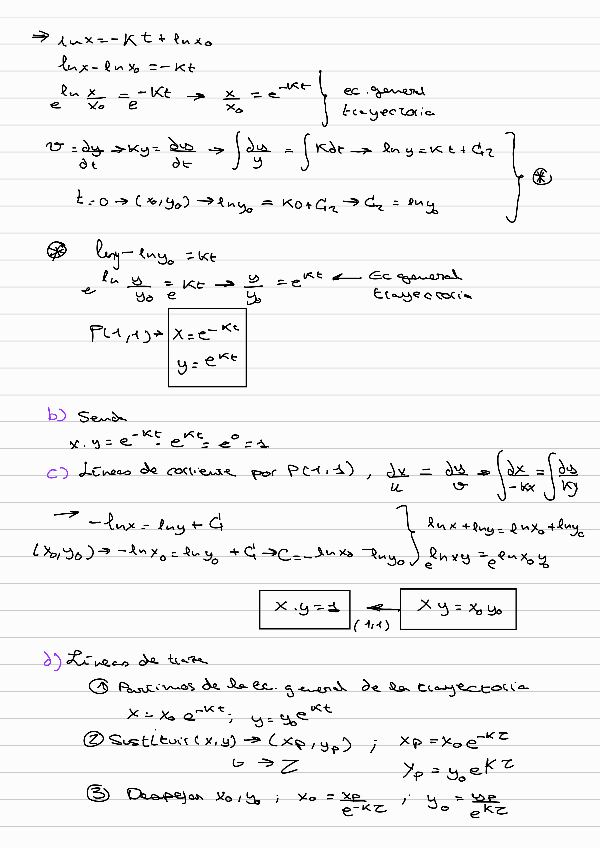 ⇒ ln x = -Kt + ln x₀
ln x - ln x₀ = -Kt
e^(ln x/x₀) = e^(-Kt) → x/x₀ = e^(-Kt) } ec. general trayectoria
v = dy/dt → Ky = dy/dt → ∫ dy/y = ∫ Kdt → ln y = Kt + C₂
t=0 → (x₀,y₀) → ln y₀ = K0 + C₂ → C₂ = ln y₀ } ⊛
⊛ ln y - ln y₀ = Kt
e^(ln y/y₀) = e^(Kt) → y/y₀ = e^(Kt) ← Ec general trayectoria
P(1,1) → x = e^(-Kt)
y = e^(Kt)
b) Senda
x.y = e^(-Kt) · e^(Kt) = e⁰ = 1
c) Líneas de corriente por P(1,1), dx/u = dy/v → ∫ dx/-Kx = ∫ dy/Ky
→ -ln x = ln y + C } ln x + ln y = ln x₀ + ln y₀
(x₀,y₀) → -ln x₀ = ln y₀ + C → C = -ln x₀ - ln y₀ } e^(ln xy) = e^(ln x₀ y₀)
x.y = 1 ← (1,1) x y = x₀ y₀
d) Líneas de traza
① Partimos de la ec. general de la trayectoria
x = x₀ e^(-Kt); y = y₀ e^(Kt)
② Sustituir (x,y) → (xp, yp) ; xp = x₀ e^(-Kτ)
t₀ → τ yp = y₀ e^(Kτ)
③ Despejar x₀, y₀ ; x₀ = xp/e^(-Kτ) ; y₀ = yp/e^(Kτ)